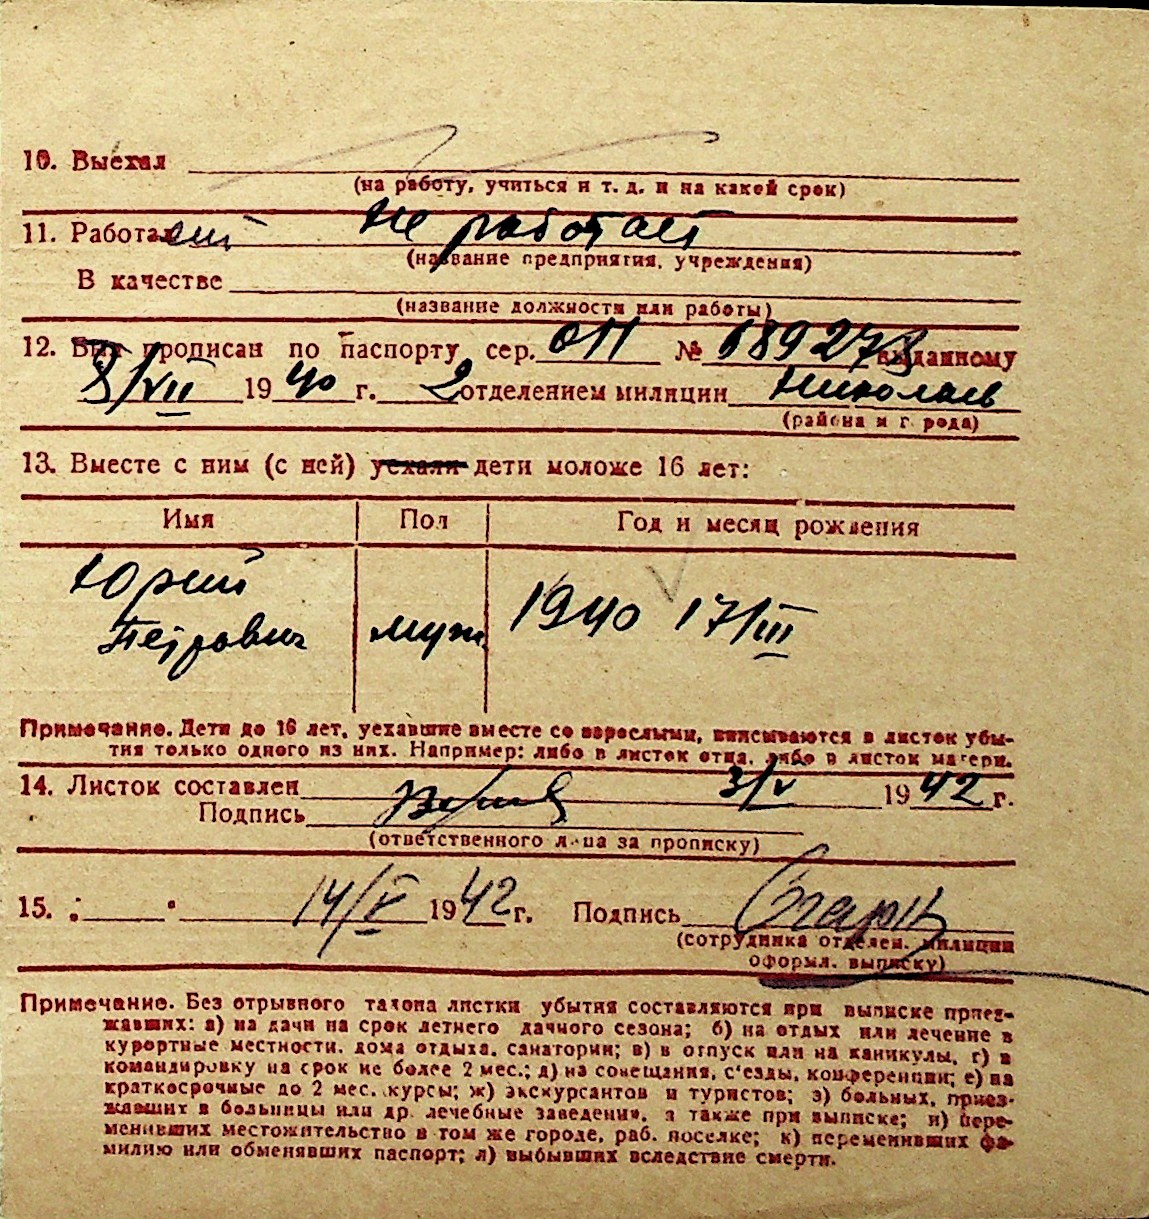 10. Выехал
(на работу, учиться и т. д. и на какой срок)
11. Работа не работает
(название предприятия, учреждения)
В качестве
(название должности или работы)
12. Был прописан по паспорту сер. ОП № 689278 выданному
8/VII 1940 г. 2 отделением милиции Николаев
(района и г. рода)
13. Вместе с ним (с ней) уехали дети моложе 16 лет:
Имя Пол Год и месяц рождения
Юрий
Петрович муж 1940 17/III
Примечание. Дети до 16 лет, уехавшие вместе со взрослыми, вписываются в листок убы-
тия только одного из них. Например: либо в листок отца, либо в листок матери.
14. Листок составлен 3/V 1942 г.
Подпись
(ответственного лица за прописку)
15. 14/V 1942 г. Подпись
(сотрудника отделен. милиции
оформл. выписку)
Примечание. Без отрывного талона листки убытия составляются при выписке приез-
жавших: а) на дачи на срок летнего дачного сезона; б) на отдых или лечение в
курортные местности, дома отдыха, санатории; в) в отпуск или на каникулы, г) в
командировку на срок не более 2 мес.; д) на совещания, с'езды, конференции; е) на
краткосрочные до 2 мес. курсы; ж) экскурсантов и туристов; з) больных, приез-
жавших в больницы или др. лечебные заведения, а также при выписке; и) пере-
менивших местожительство в том же городе, раб. поселке; к) переменивших фа-
милию или обменявших паспорт; л) выбывших вследствие смерти.